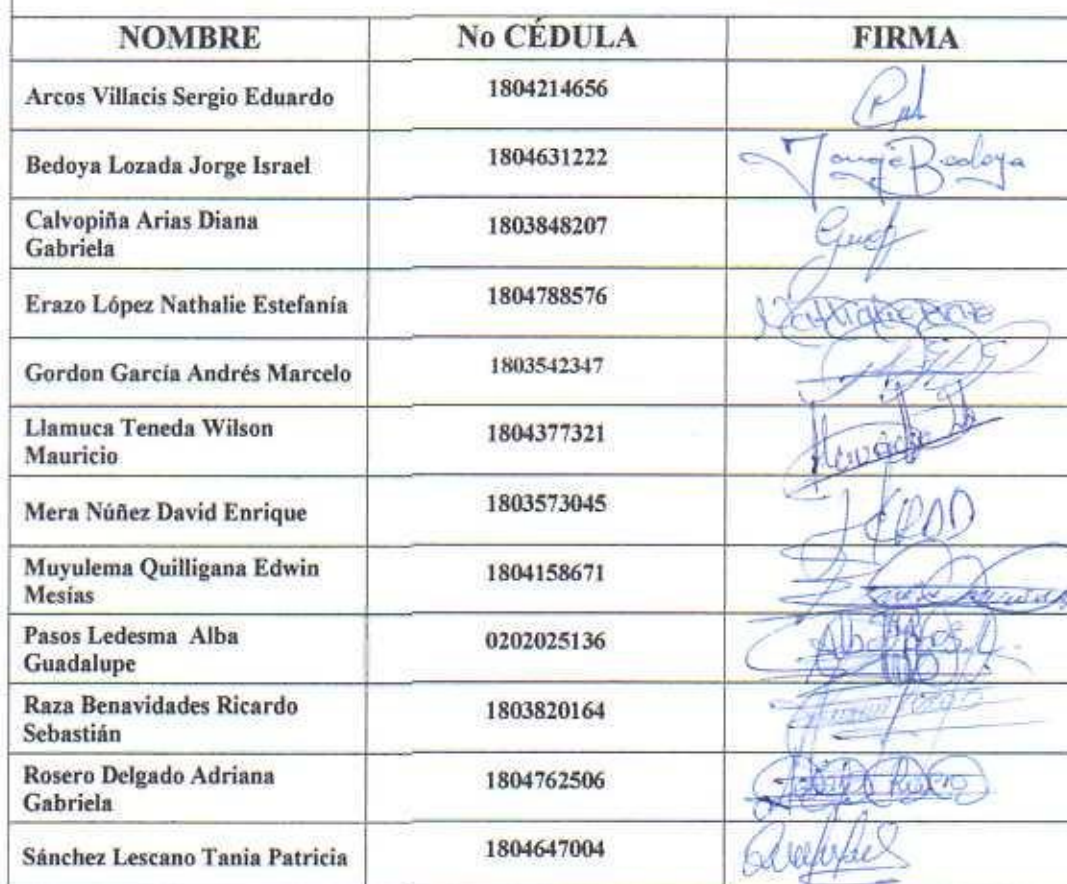 NOMBRE No CÉDULA FIRMA
Arcos Villacis Sergio Eduardo 1804214656
Bedoya Lozada Jorge Israel 1804631222 Jorge Bedoya
Calvopiña Arias Diana
Gabriela 1803848207
Erazo López Nathalie Estefanía 1804788576
Gordon García Andrés Marcelo 1803542347
Llamuca Teneda Wilson
Mauricio 1804377321
Mera Núñez David Enrique 1803573045
Muyulema Quilligana Edwin
Mesías 1804158671
Pasos Ledesma Alba
Guadalupe 0202025136
Raza Benavidades Ricardo
Sebastián 1803820164
Rosero Delgado Adriana
Gabriela 1804762506
Sánchez Lescano Tania Patricia 1804647004